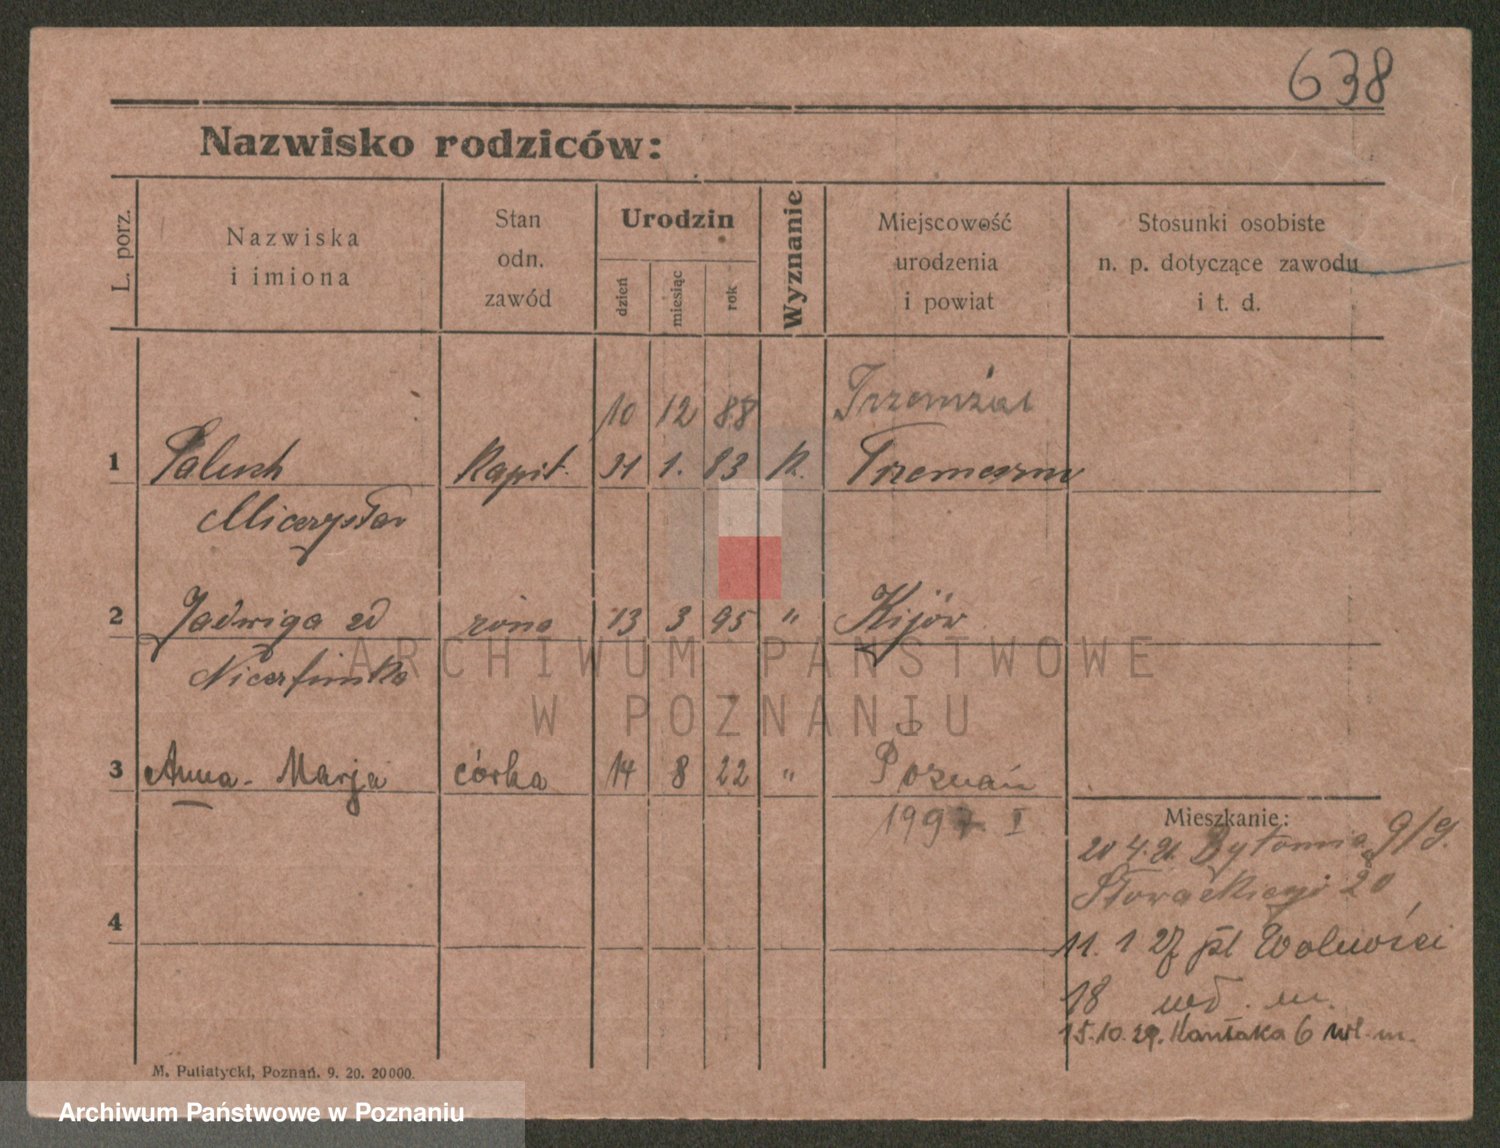 638
Nazwisko rodziców:
L. porz.
Nazwiska
i imiona
Stan
odn.
zawód
Urodzin
dzień
miesiąc
rok
Wyznanie
Miejscowość
urodzenia
i powiat
Stosunki osobiste
n. p. dotyczące zawodu
i t. d.
10 12 88 Trzemżal
1 Paluch Kapit. 31 1. 83 K. Trzemeszno
Mieczysław
2 Jadwiga zd żona 13 3 95 " Kijów
ARCHIWUM PAŃSTWOWE
W POZNANIU
3 Anna-Marja córka 14 8 22 " Poznań
Mieszkanie:
20 4. 21. Bytomia 9/9.
Słowackiego 20
4
11. 1 27 pl Wolności
18 m.
15.10.29. Kantaka 6 wł. m.
M. Putiatycki, Poznań. 9. 20. 20000.
Archiwum Państwowe w Poznaniu